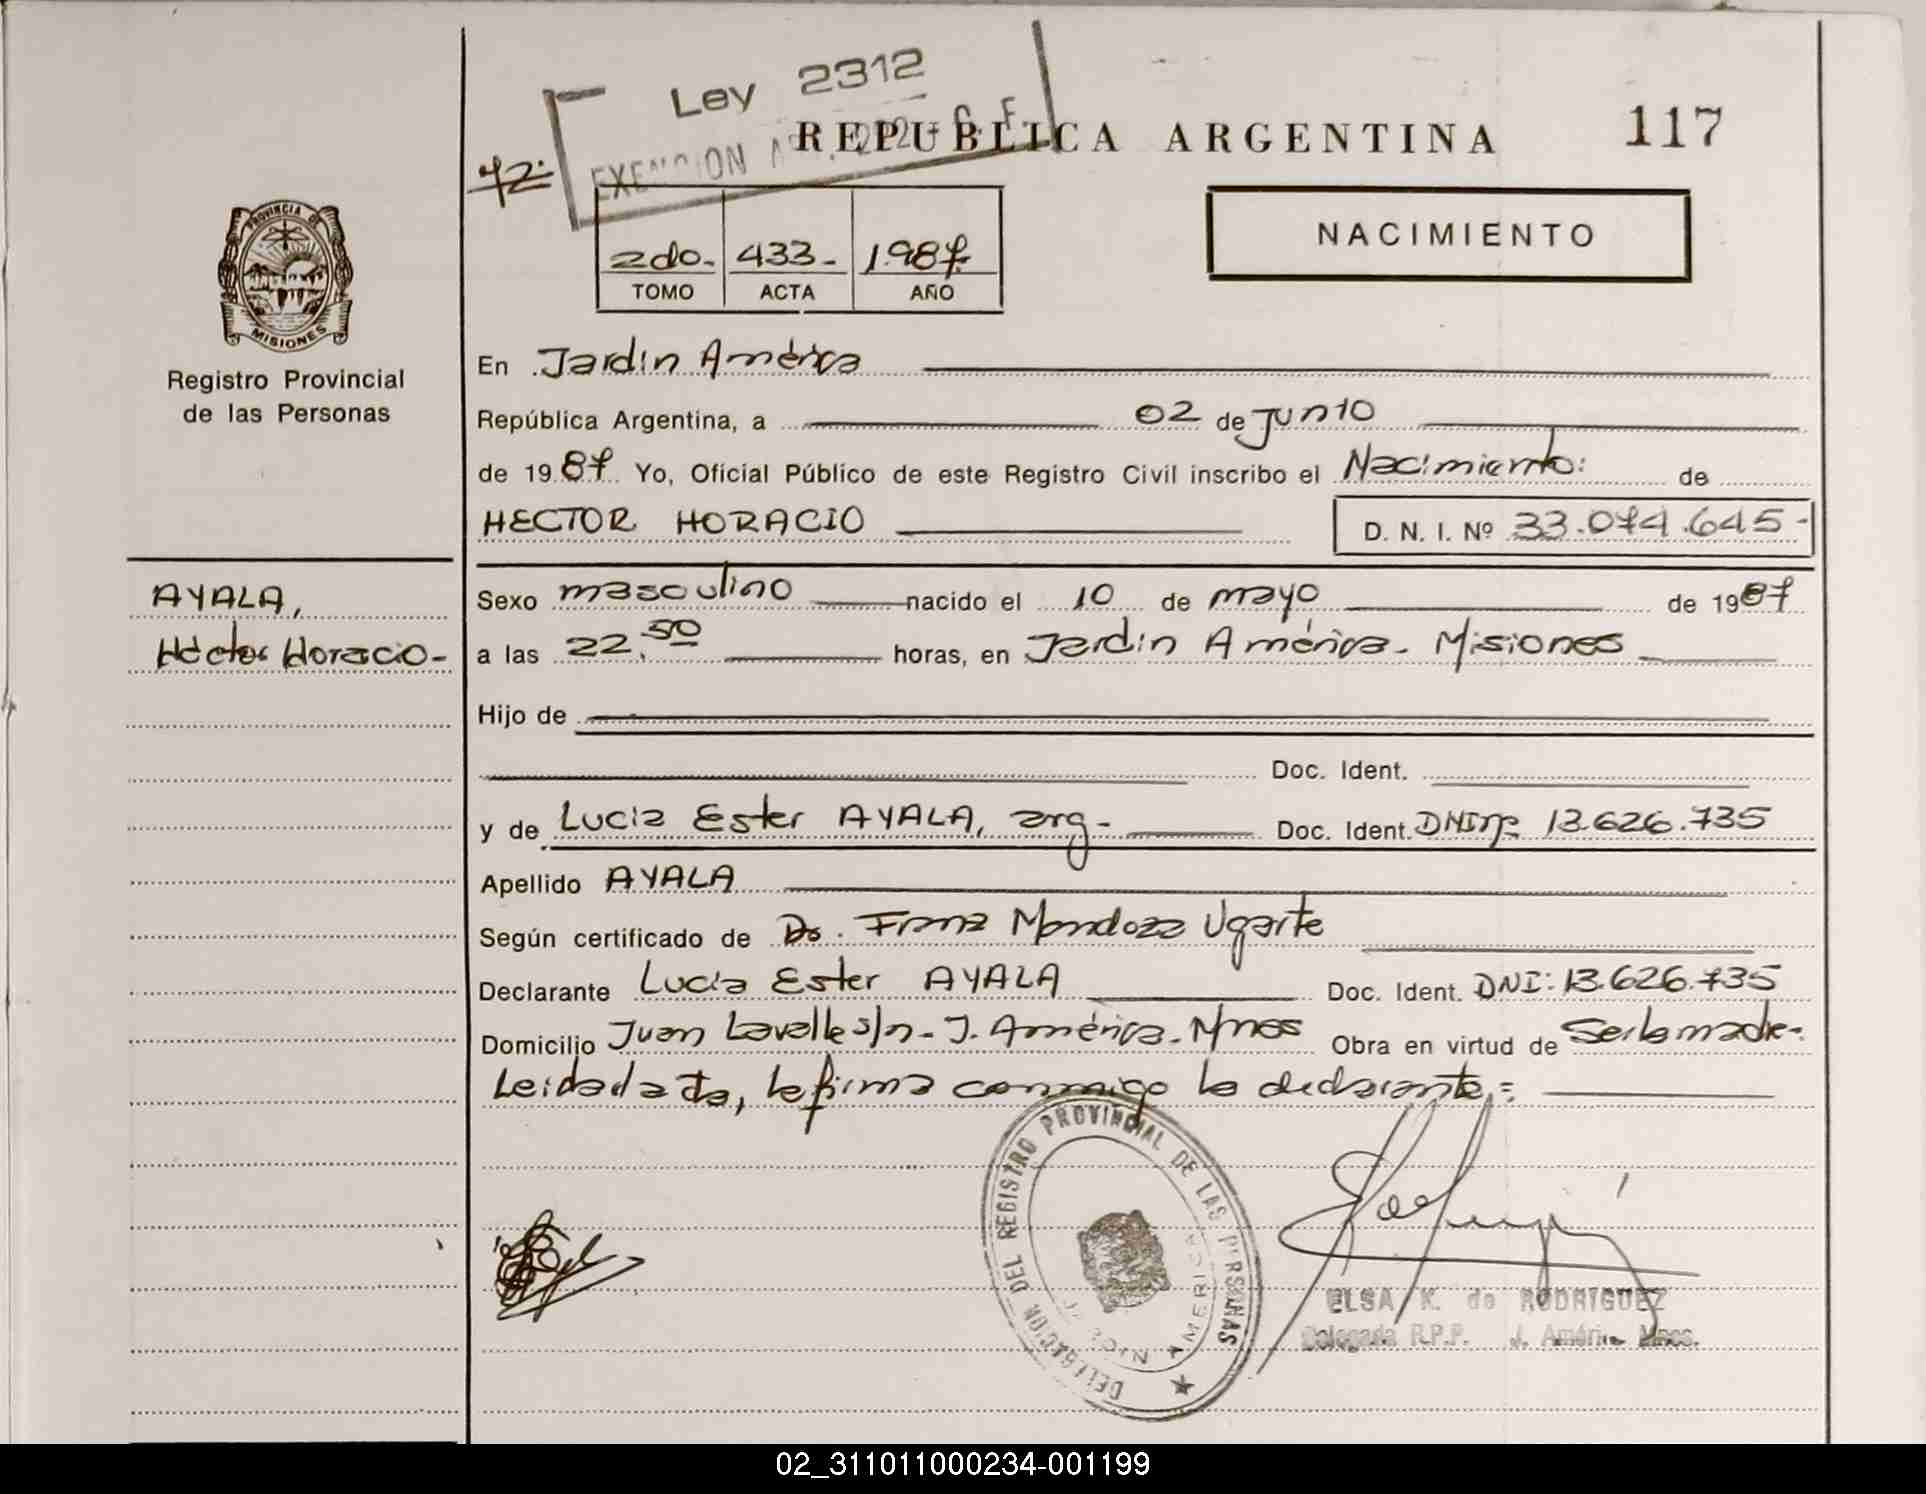 Ley 2312
REPUBLICA ARGENTINA
117
NACIMIENTO
2do. 433- 1.987
TOMO ACTA AÑO
PROVINCIA DE
MISIONES
Registro Provincial
de las Personas
AYALA,
Héctor Horacio-
En Jardin América
República Argentina, a 02 de Junio
de 1987 Yo, Oficial Público de este Registro Civil inscribo el Nacimiento: de
HECTOR HORACIO D. N. I. Nº 33.074.645-
Sexo masculino nacido el 10 de mayo de 1987
a las 22,50 horas, en Jardin América- Misiones
Hijo de
Doc. Ident.
y de Lucia Ester AYALA, arg- Doc. Ident. DNI nº 13.626.735
Apellido AYALA
Según certificado de Dr. Franz Mendoza Ugarte
Declarante Lucia Ester AYALA Doc. Ident. DNI: 13.626.735
Domicilio Juan Lavalle s/n- J. América- Mnes Obra en virtud de Ser la madre-
Leida el acta, la firma conmigo la declarante=
DELEGACION DEL REGISTRO PROVINCIAL DE LAS PERSONAS
AMERICA
ELSA K. de RODRIGUEZ
Delegada R.P.P. J. América Mnes.
02_311011000234-001199